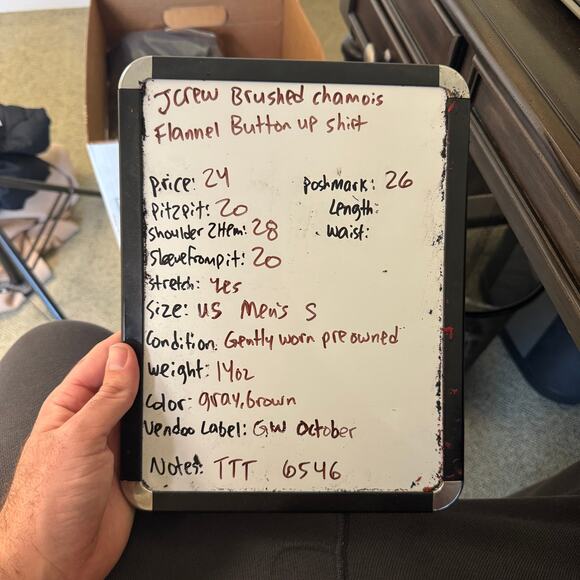 Jcrew Brushed chamois
Flannel Button up shirt
price: 24 poshmark: 26
pit2pit: 20 Length:
shoulder 2 Hem: 28 waist:
Sleeve from pit: 20
stretch: yes
Size: US Men's S
Condition: Gently worn pre owned
Weight: 14oz
Color: gray, brown
Vendoo Label: GW October
Notes: TTT 6546